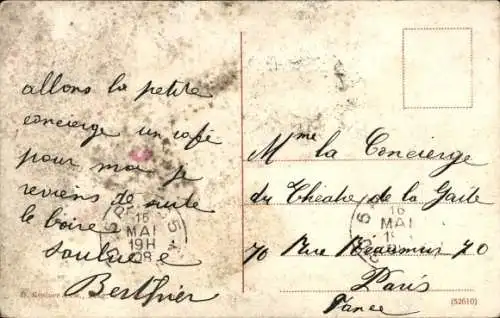 allons la petite
concierge un café
pour moi je
reviens de suite
le boire
Berthier
16
MAI
19H
08
Mme la Concierge
du Théatre de la Gaite
16
MAI
70 Rue Réaumur 70
Paris
France
(52610)